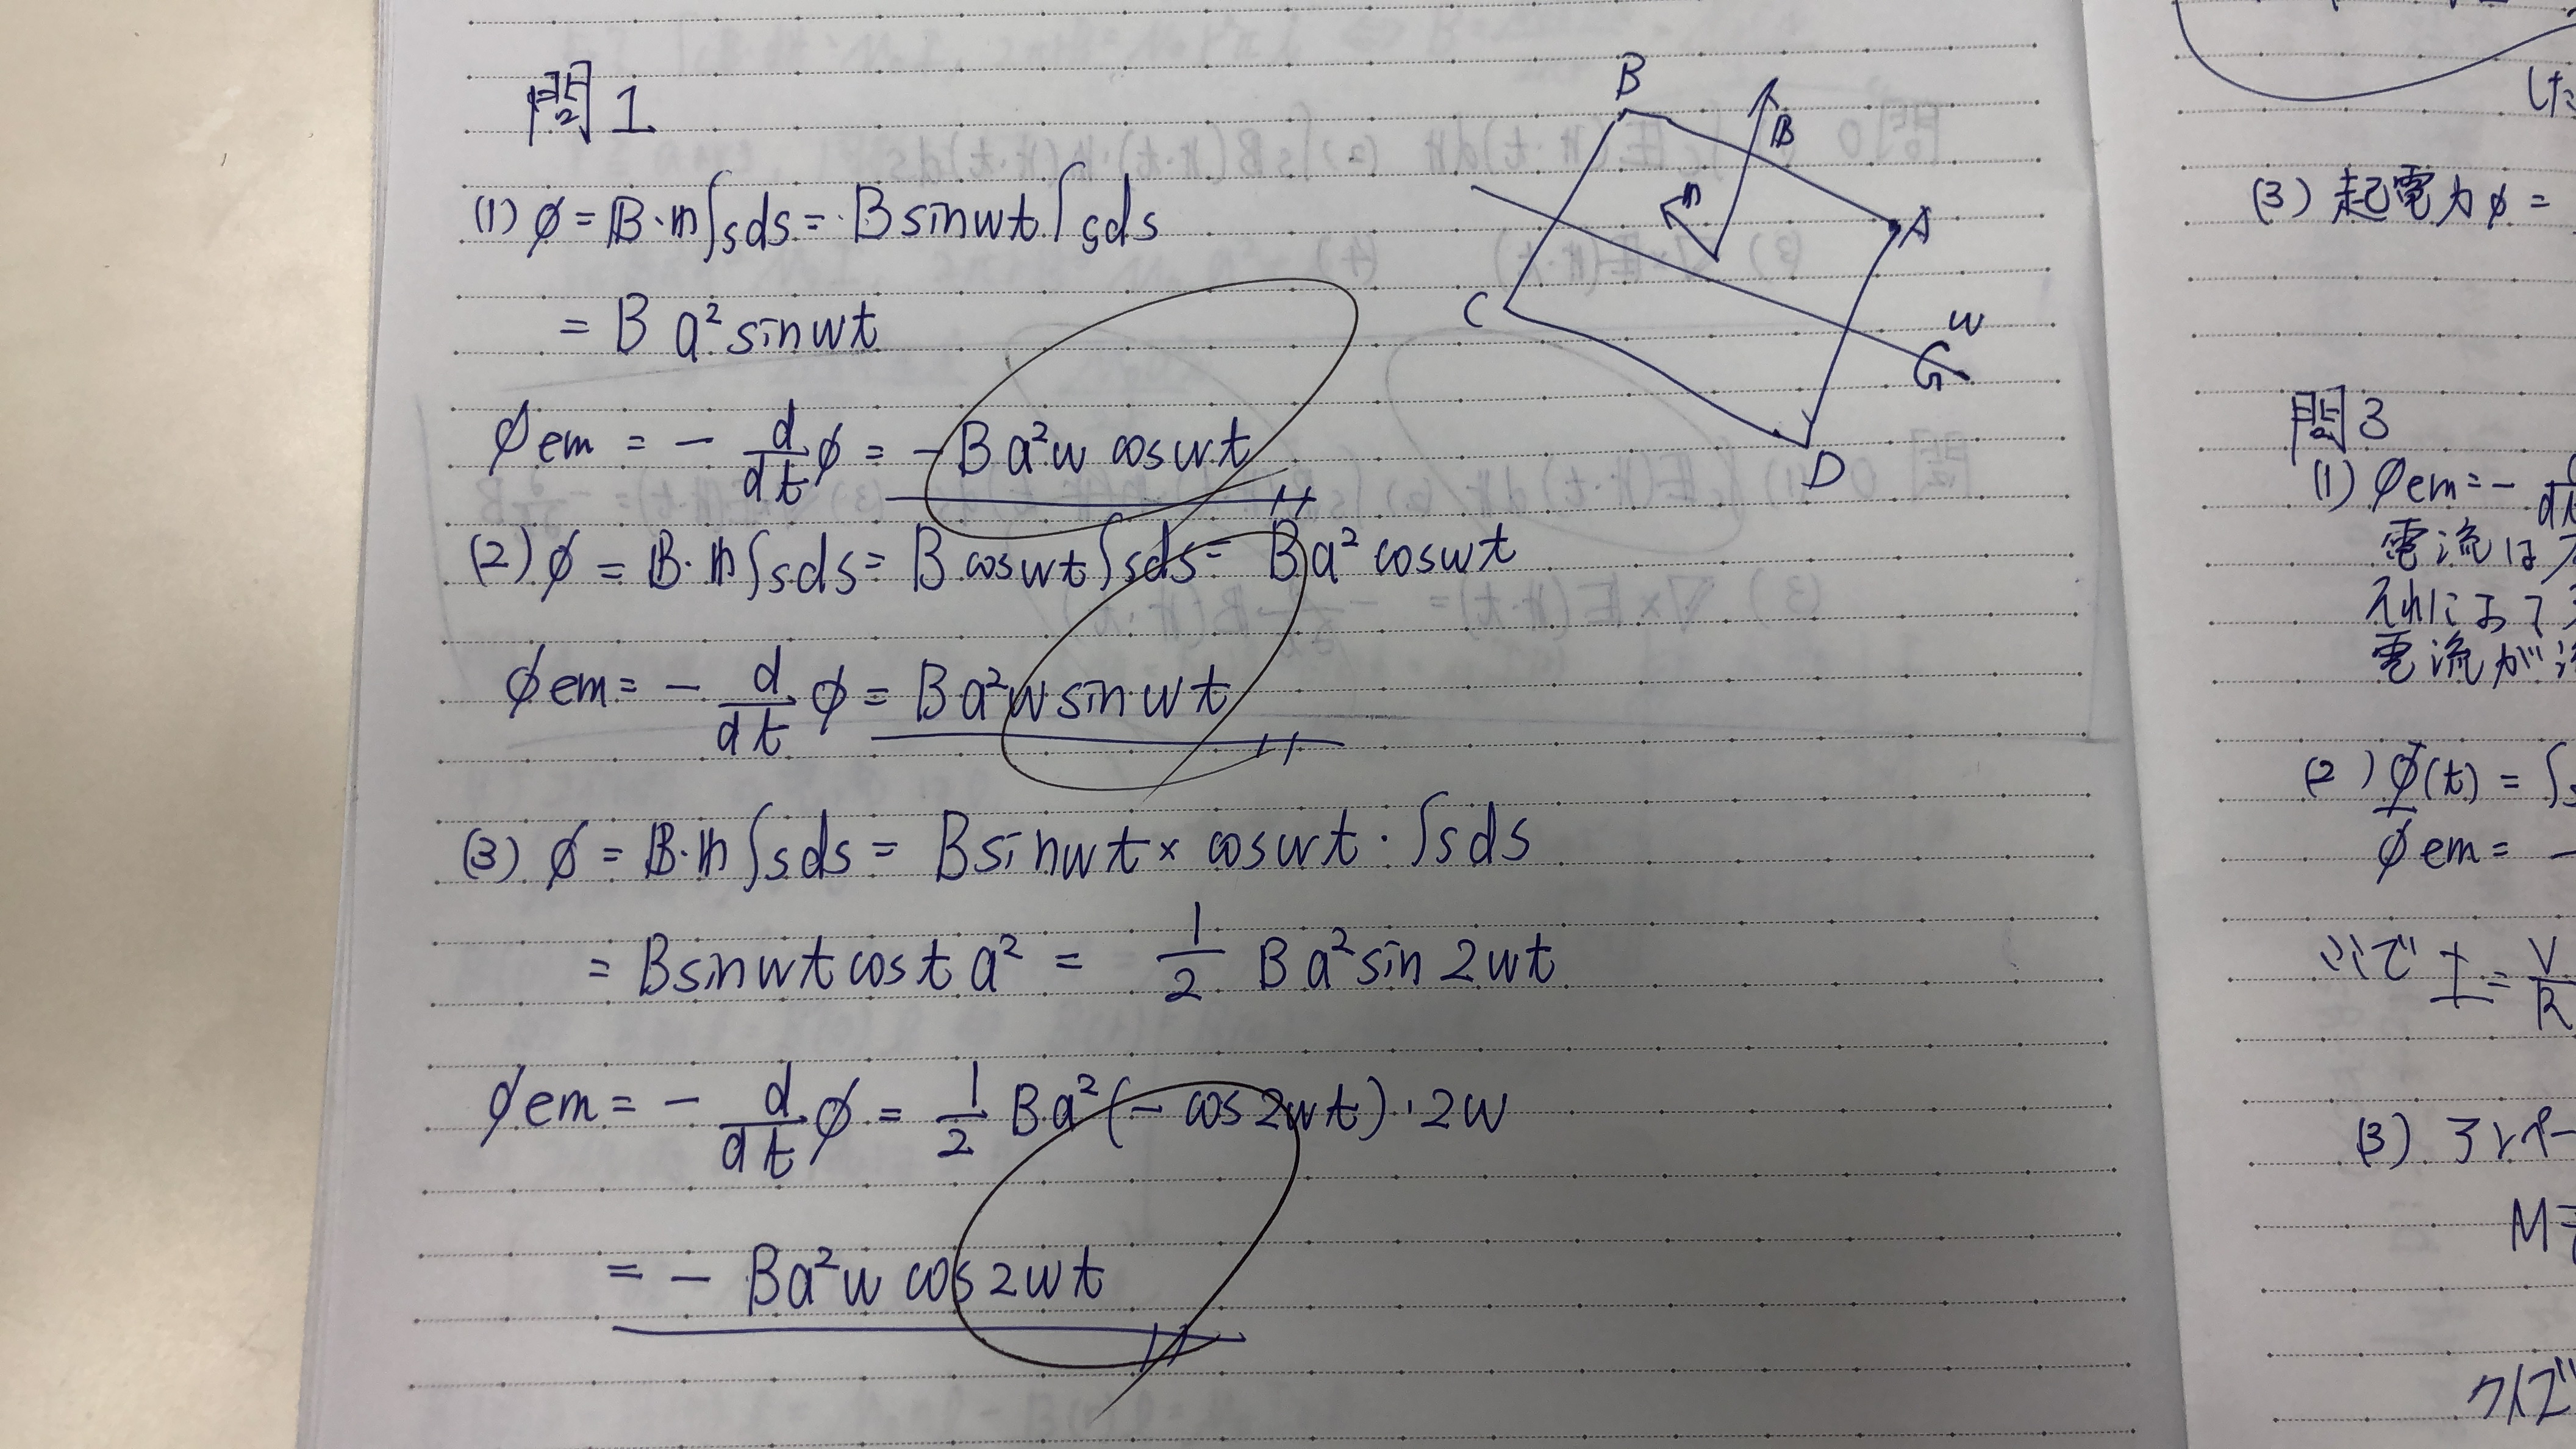 問1
(1) φ = B・n∫s ds = B sinωt ∫s ds
= B a² sinωt
φem = - d/dt φ = - B a² ω cosωt
(2) φ = B・n∫s ds = B cosωt ∫s ds = B a² cosωt
φem = - d/dt φ = B a² ω sinωt
(3) φ = B・n∫s ds = B sinωt × cosωt・∫s ds
= B sinωt cost a² = 1/2 B a² sin2ωt
φem = - d/dt φ = 1/2 B a² (- cos2ωt)・2ω
= - B a² ω cos2ωt
B
B
n
A
C
ω
D
した
(3) 起電力φ =
問3
(1) φem = -
電流は
それによって
電流が
(2) Φ(t) = ∫
φem = -
ここで I = V/R
(3) アンペー
M =
クイズ